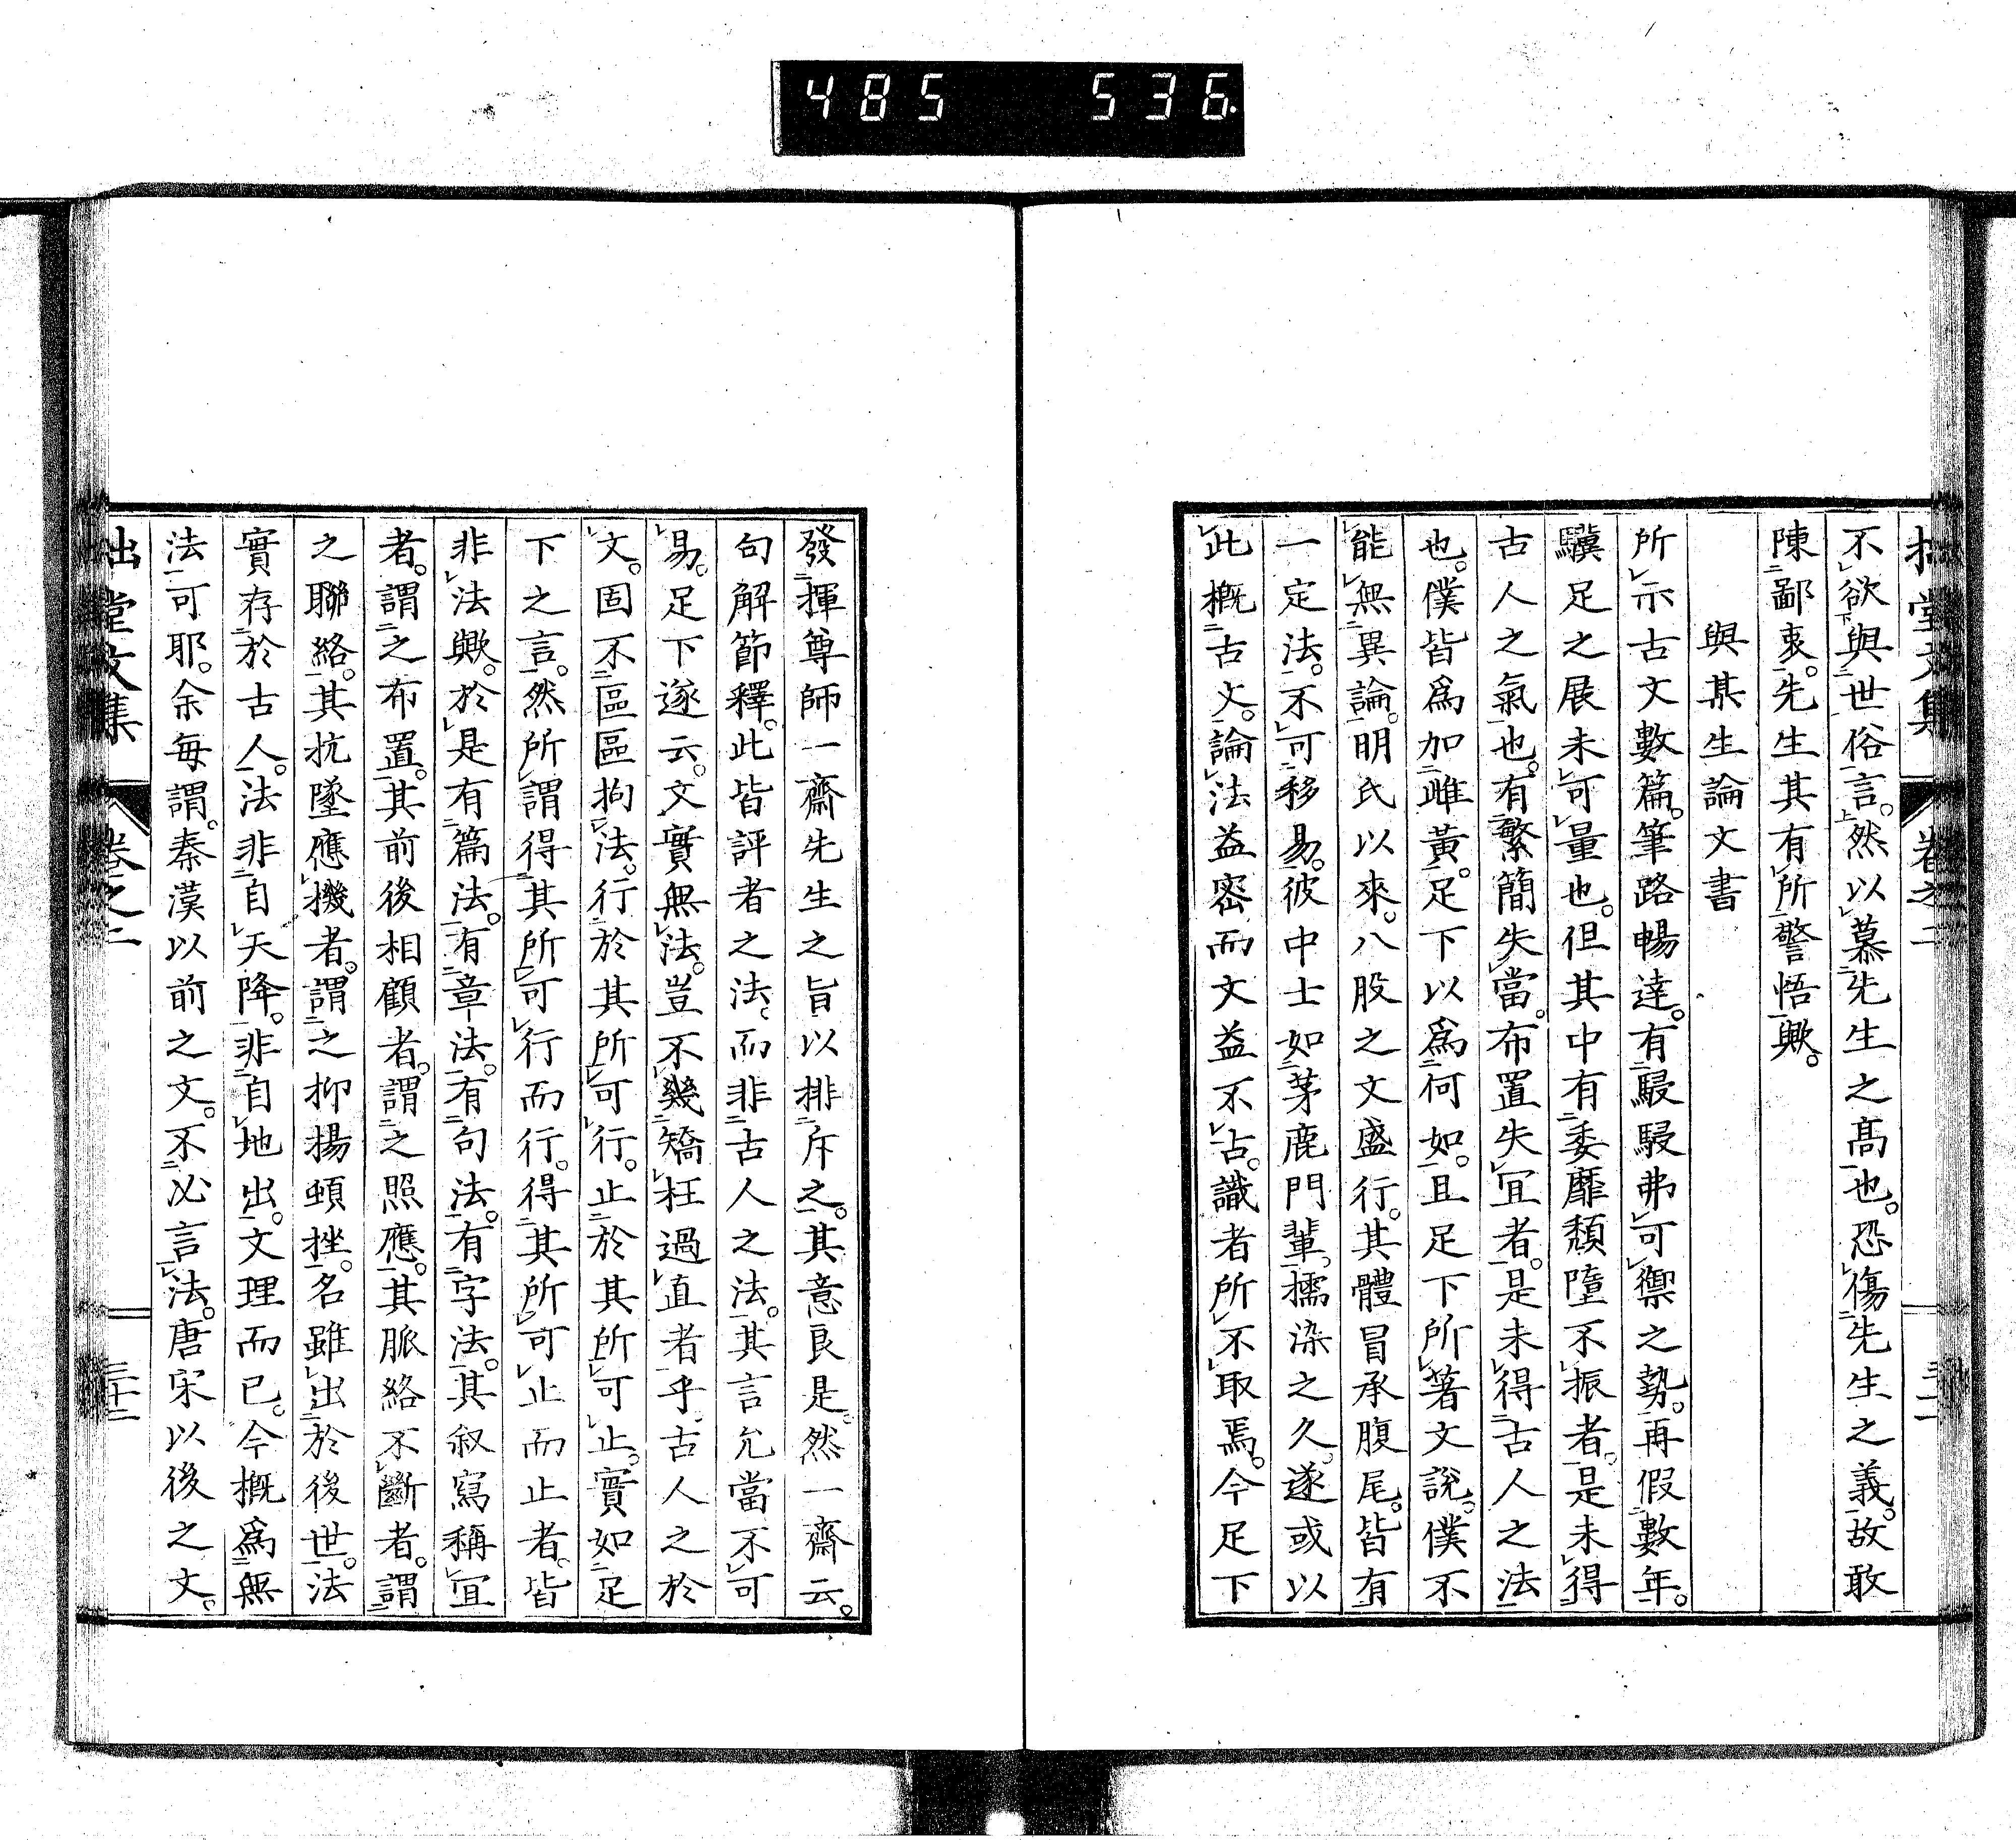 485 536.
拙堂文集 卷之二
不欲與世俗言。然以慕先生之高也。恐傷先生之義。故敢
陳鄙衷。先生其有所警悟歟。
與某生論文書
所示古文數篇。筆路暢達。有駸駸弗可禦之勢。再假數年。
驥足之展未可量也。但其中有委靡頹墮不振者。是未得
古人之氣也。有繁簡失當。布置失宜者。是未得古人之法
也。僕皆爲加雌黃。足下以爲何如。且足下所著文說。僕不
能無異論。明氏以來。八股之文盛行。其體冒承腹尾。皆有
一定法。不可移易。彼中士如茅鹿門輩。擩染之久。遂或以
此概古文。論法益密而文益不古。識者所不取焉。今足下
發揮尊師一齋先生之旨以排斥之。其意良是。然一齋云。
句解節釋。此皆評者之法、而非古人之法。其言允當不可
易。足下遂云。文實無法。豈不幾矯枉過直者乎。古人之於
文。固不區區拘法。行於其所可行。止於其所可止。實如足
下之言。然所謂得其所可行而行。得其所可止而止者。皆
非法歟。於是有篇法。有章法。有句法。有字法。其叙寫稱宜
者。謂之布置。其前後相顧者。謂之照應。其脈絡不斷者。謂
之聯絡。其抗墜應機者。謂之抑揚頓挫。名雖出於後世。法
實存於古人。法非自天降。非自地出。文理而已。今概爲無
法可耶。余每謂。秦漢以前之文。不必言法。唐宋以後之文。
拙堂文集 卷之二 三十二